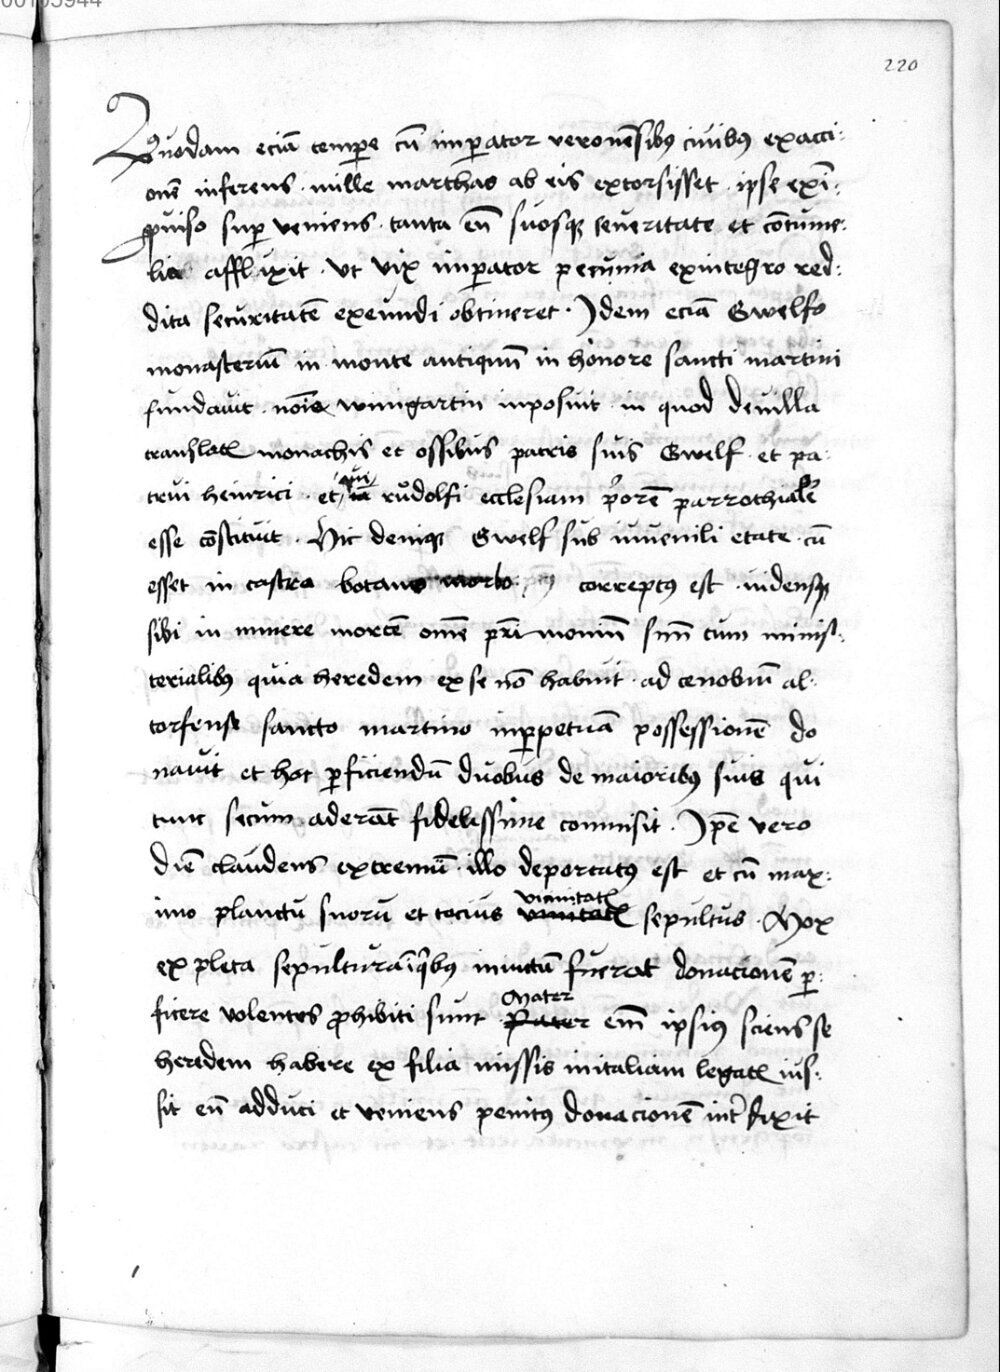 00105944
220
Quodam eciā tempe cū impator veronēsibꝰ ciuibꝰ exacci:
onē inferens · mille marchas ab eis extorsisset · ipse exī:
ꝓuiso sup veniens · tanta eū suosqꝫ seueritate et cōtume:
lia afflixit · vt vix impator pecunia exintegro red:
dita securitatē exeundi obtineret · Idem eciā Gwelfo
monasteriū in monte antiquū in honore sancti martini
fundauit · noīe wingartin inposuit · in quod deuilla
translatꝭ monachis et ossibus patris suis Gwelf · et pa:
trui heinrici · et růdolfi ecclesiam p̄orē parrochialē
esse cōstituit · Hic deniqꝫ Gwelf sub iuuenili etate · cū
esset in castra botamo morbo correptꝰ est · uidensqꝫ
sibi in minere mortē omē pr̄imoniū suū cum minis:
terialibꝰ quia heredem ex se nō habuit · ad cenobiū al:
torfense sancto martino inppetuā possessionē do
nauit et hoc pficiendū duobus de maioribꝰ suis qui
tunc secum aderāt fidelissime commisit · Ipē vero
diē claudens extremū · illo deportatꝰ est et cū max:
imo planctu suorū et tocius vicinitatꝭ sepultus · Mox
expleta sepultura īq̄bus iniunctū fuerat donacionē p:
ficere volentes ꝓhibiti sunt · Mater
Pater enī ipsiꝰ sciens se
heredem habere ex filia missis initaliam legatꝭ ius:
sit eū adduci et veniens penitꝰ donacionē int̄dixit